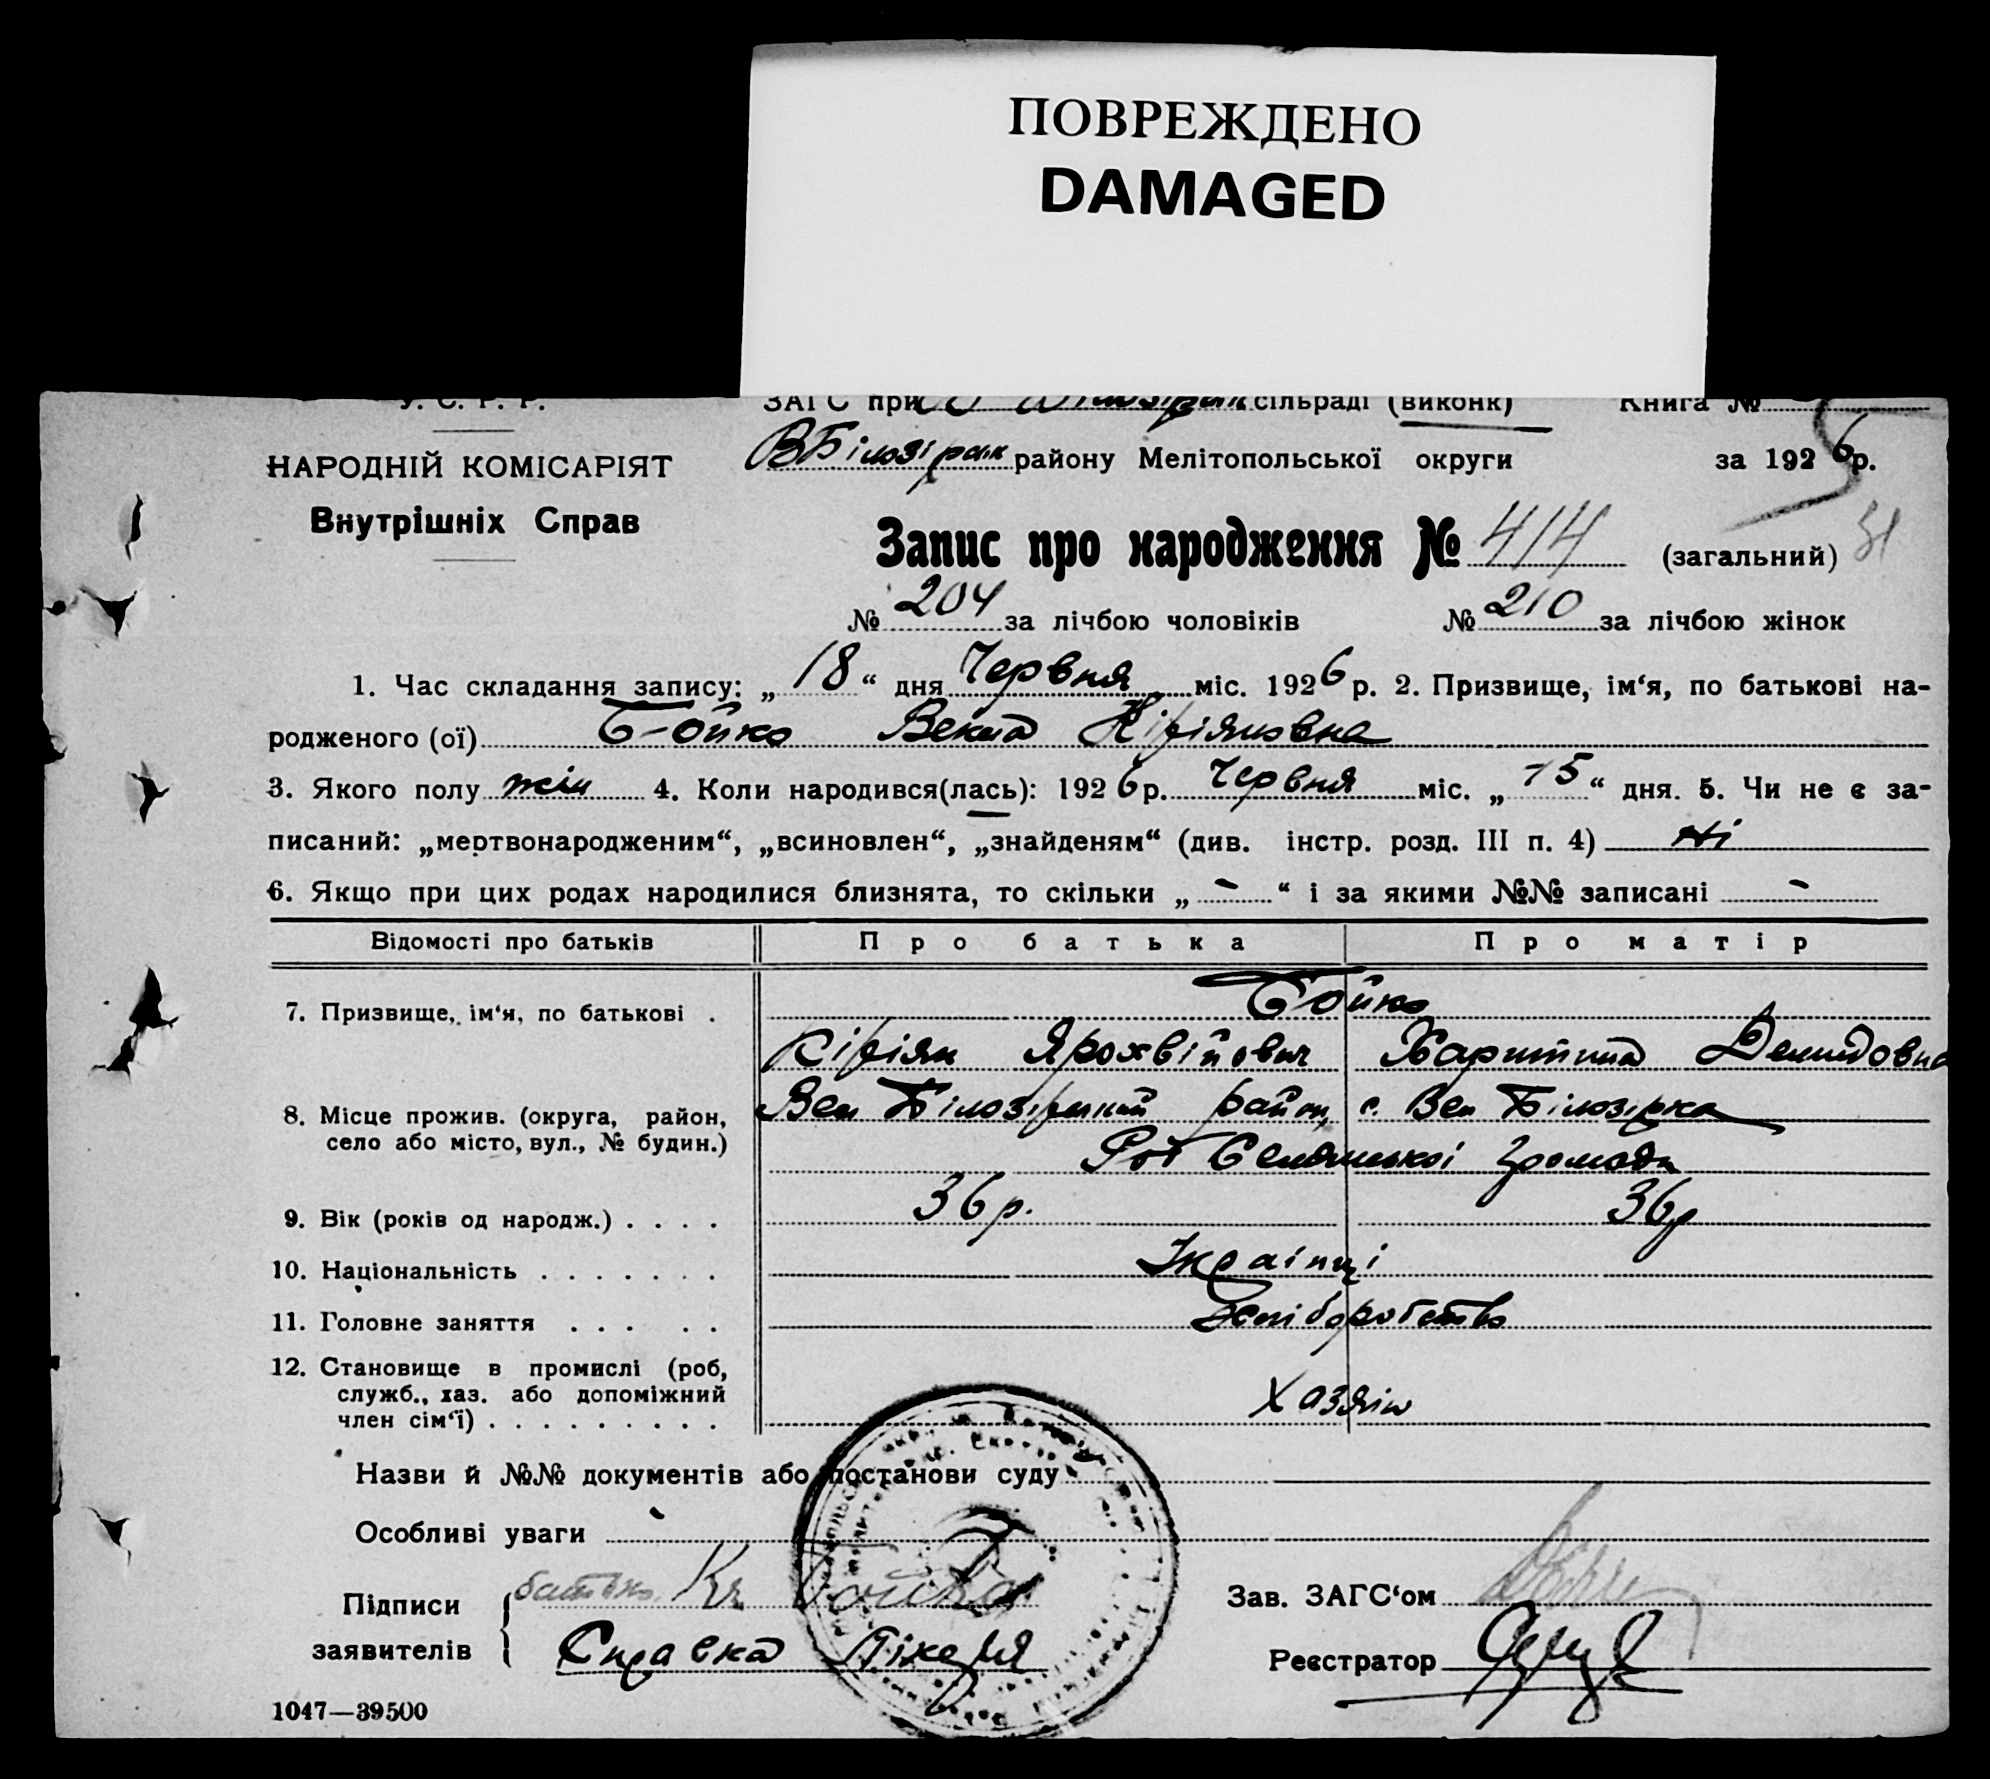 ПОВРЕЖДЕНО
DAMAGED
У. С. Р. Р.
ЗАГС при сільраді (виконк) Книга №
НАРОДНІЙ КОМІСАРІЯТ
Внутрішніх Справ
ВБілозірськ району Мелітопольської округи за 1926р.
Запис про народження № 414 (загальний) 31
№ 204 за лічбою чоловіків № 210 за лічбою жінок
1. Час складання запису: „18“ дня Червня міс. 1926 р. 2. Призвище, ім‘я, по батькові на-
родженого (ої) Бойко Векла Кіріяновна
3. Якого полу жін 4. Коли народився(лась): 1926р. Червня міс. „15“ дня. 5. Чи не є за-
писаний: „мертвонародженим“, „всиновлен“, „знайденям“ (див. інстр. розд. III п. 4) Ні
6. Якщо при цих родах народилися близнята, то скільки „-“ і за якими №№ записані -
Відомості про батьків Про батька Про матір
7. Призвище, ім‘я, по батькові . Бойко
Кіріян Харитина Демидовна
8. Місце прожив. (округа, район, село або місто, вул., № будин.)
Вел Білозірський район, с. Вел Білозірка
громади
9. Вік (років од народж.) . . . . 36р. 36р
10. Національність . . . . . . . Українці
11. Головне заняття . . . . . Хліборобство
12. Становище в промислі (роб, служб., хаз. або допоміжний член сім‘ї) . . . . . . . . . Хазяін
Назви й №№ документів або постанови суду
Особливі уваги -
Підписи заявителів { батько Кл Бойко
Зав. ЗАГС‘ом
Реєстратор
1047—39500